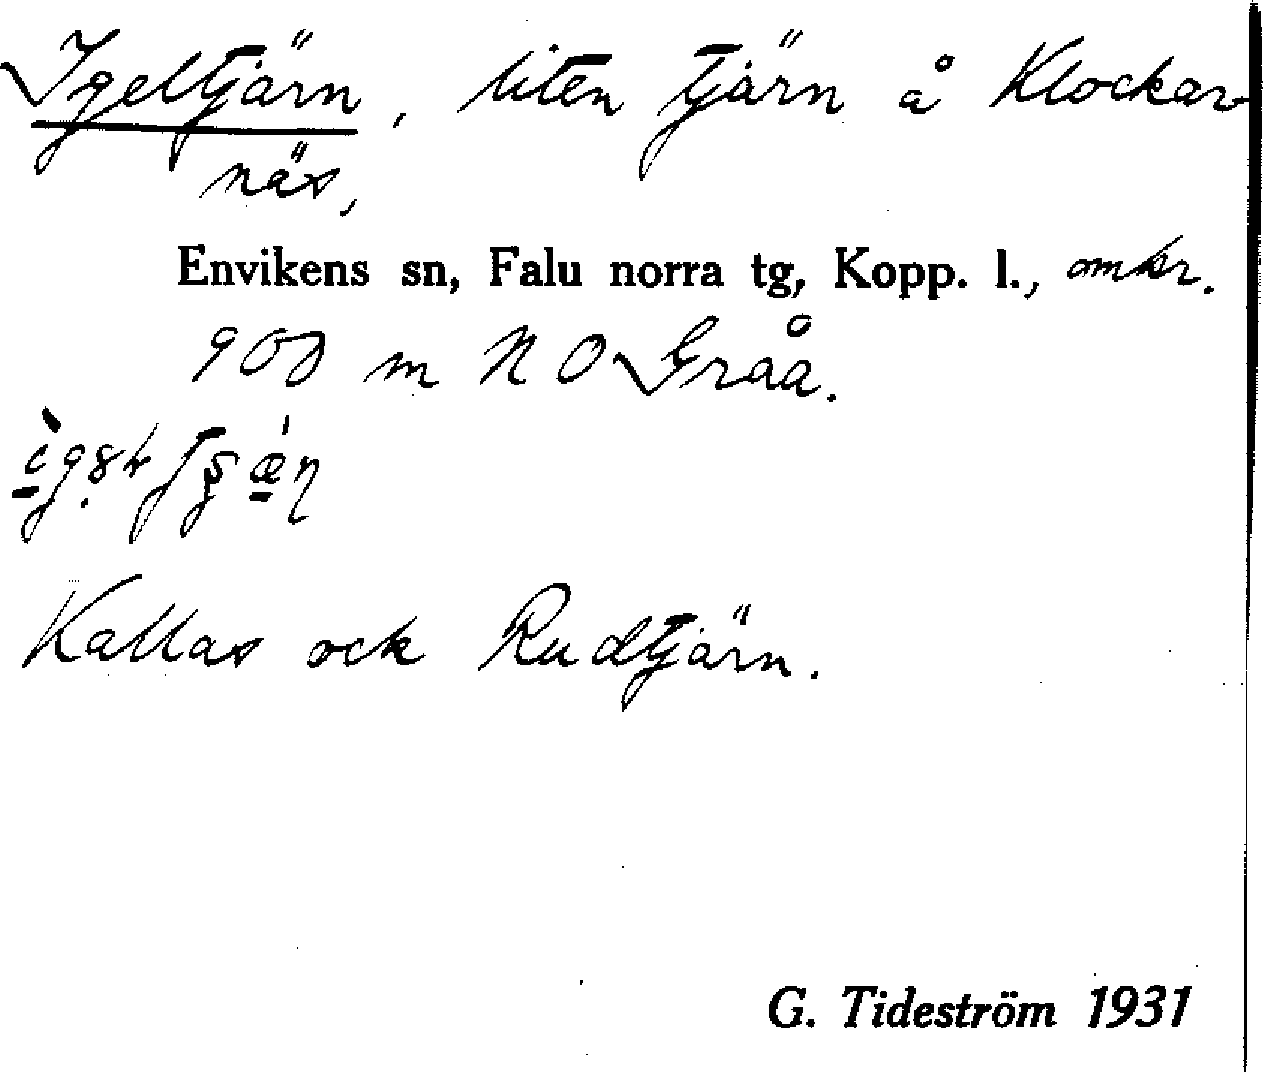 Igeltjärn, liten tjärn å Klockar-
näs,
Envikens sn, Falu norra tg, Kopp. l., omkr.
900 m NO Gråa.
Kallas ock Rudtjärn.
G. Tideström 1931